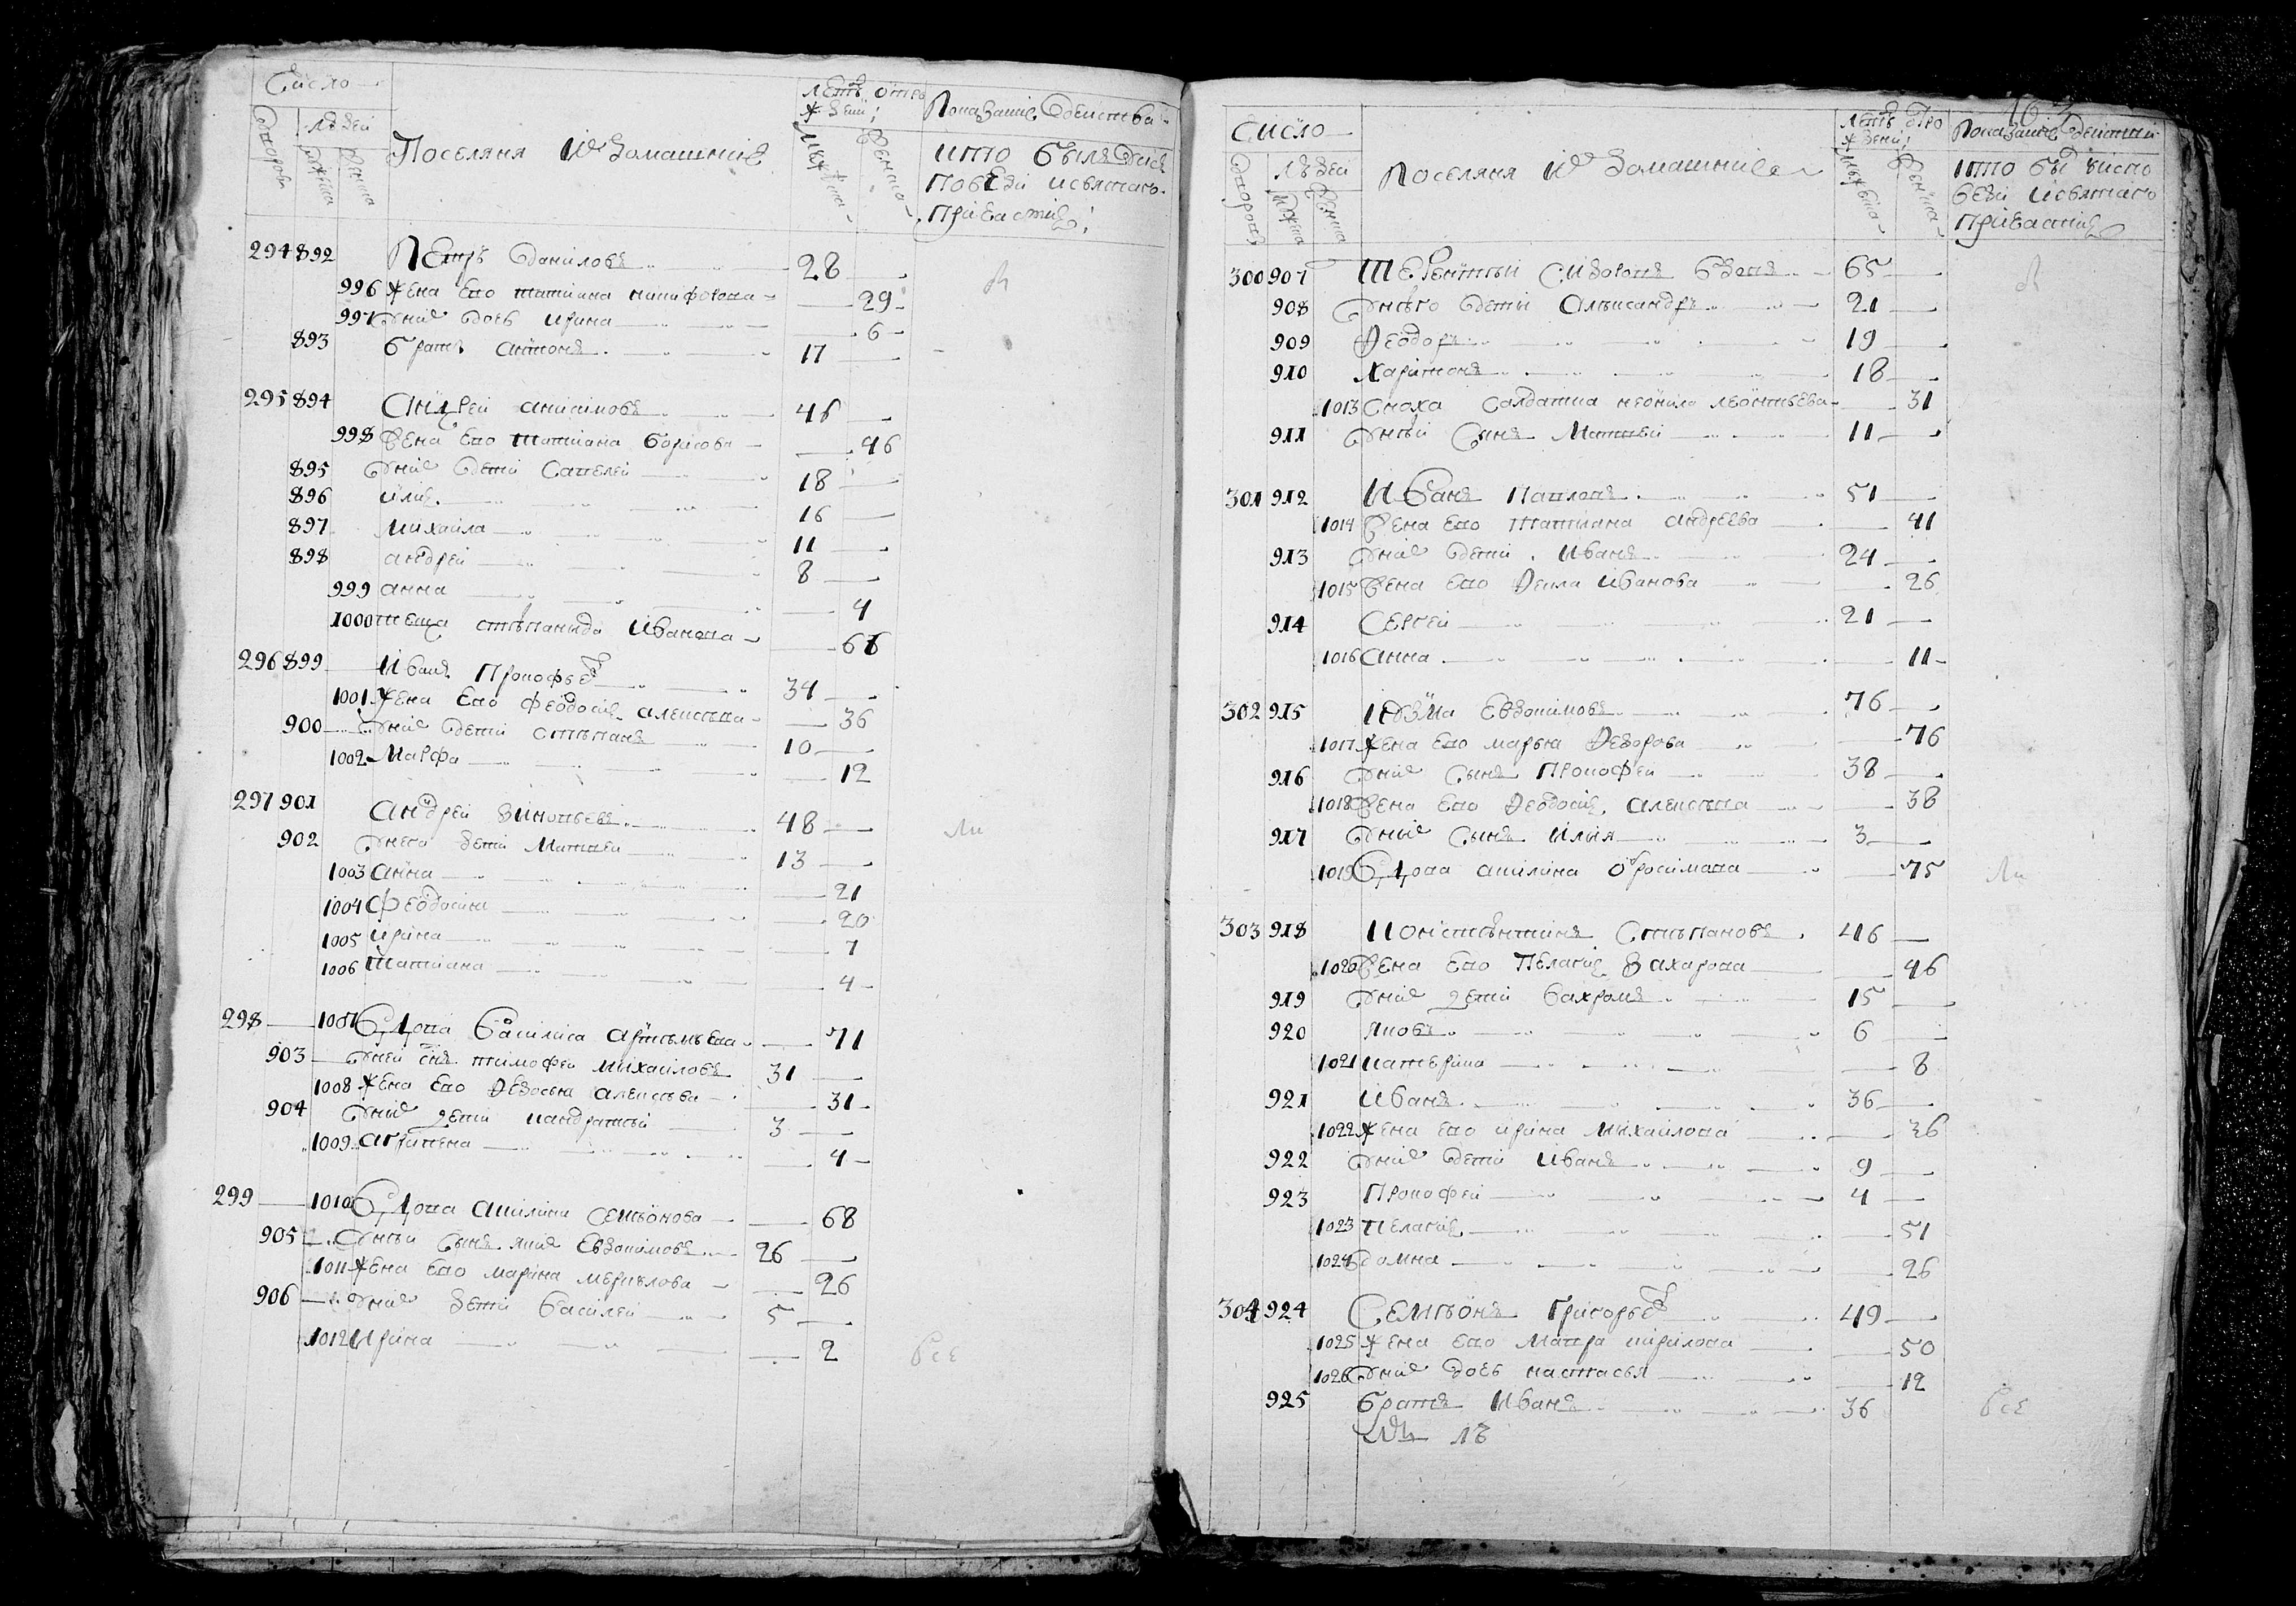 Число
Дворовъ
Людей
Мужеска
Женска
Поселяня и домашние
Летъ от рождения
Мужеска
Женска
Показание действа
кто былъ у исповеди и святаго причастия
294 892 Петръ Даниловъ 28
996 Жена его татиана никифорова 29
997 у них дочь ирина 6
893 братъ антонъ 17
295 894 Андрей анисимовъ 46
998 Жена его татиана борисова 46
895 у них дети Савелей 18
896 илия 16
897 михаила 11
898 андрей 8
999 анна 4
1000 теща степанида Иванова
296 899 Иванъ Прокофьев 34
1001 Жена его феодосия алексеева 36
900 у них дети степанъ 10
1002 Марфа 12
297 901 Андрей Зиновьевъ 48 ли
902 у него дети Матвей 13
1003 анна 21
1004 феодосия 20
1005 ирина 7
1006 татиана 4
298 1007 Вдова Василиса артемьева 71
903 у ней снъ тимофей михайловъ 31
1008 Жена его Федосья алексеева 31
904 у них дети кандратей 3
1009 агрипена 4
299 1010 Вдова акилина семионова 68
905 у ней сынъ яков Евдокимовъ 26
1011 Жена его марина меркулова 26
906 у них дети василей 5
1012 Ирина 2
все
Число
Дворовъ
Людей
Мужеска
Женска
Поселяня и домашние
Летъ от рождения
Мужеска
Женска
Показание действия
кто был у исповеди и святаго причастия
300 907 Терентий Сидоровъ вдовъ 65
908 у него дети Александръ 21
909 Феодоръ 19
910 харитонъ 18
1013 сноха салдатка неонила леонтьева 31
911 у ней сынъ Матвей 11
301 912 Иванъ Павловъ 51
1014 Жена его татиана андреева 41
913 у них дети Иванъ 24
1015 Жена его Фекла Иванова 26
914 Сергей 21
1016 анна 11
302 915 Кузма Евдокимовъ 76
1017 Жена его марья Федорова 76
916 у них сынъ Прокофей 38
1018 Жена его Феодосия алексеева 38
917 у них сынъ Илья 3
1019 Вдова акилина обросимова 75 ли
303 918 Констянтинъ Степановъ 46
1020 Жена его Пелагия Захарова 46
919 у них дети вахромъ 15
920 яковъ 6
1021 катерина 8
921 Иванъ 36
1022 Жена его ирина Михайлова 36
922 у них дети Иванъ 9
923 Прокофей 4
1023 Пелагия 51
1024 домна 26
304 924 Семионъ Григорьев 49
1025 Жена его Мавра кирилова 50
1026 у них дочь настасья 12
925 братъ Иванъ 36
все